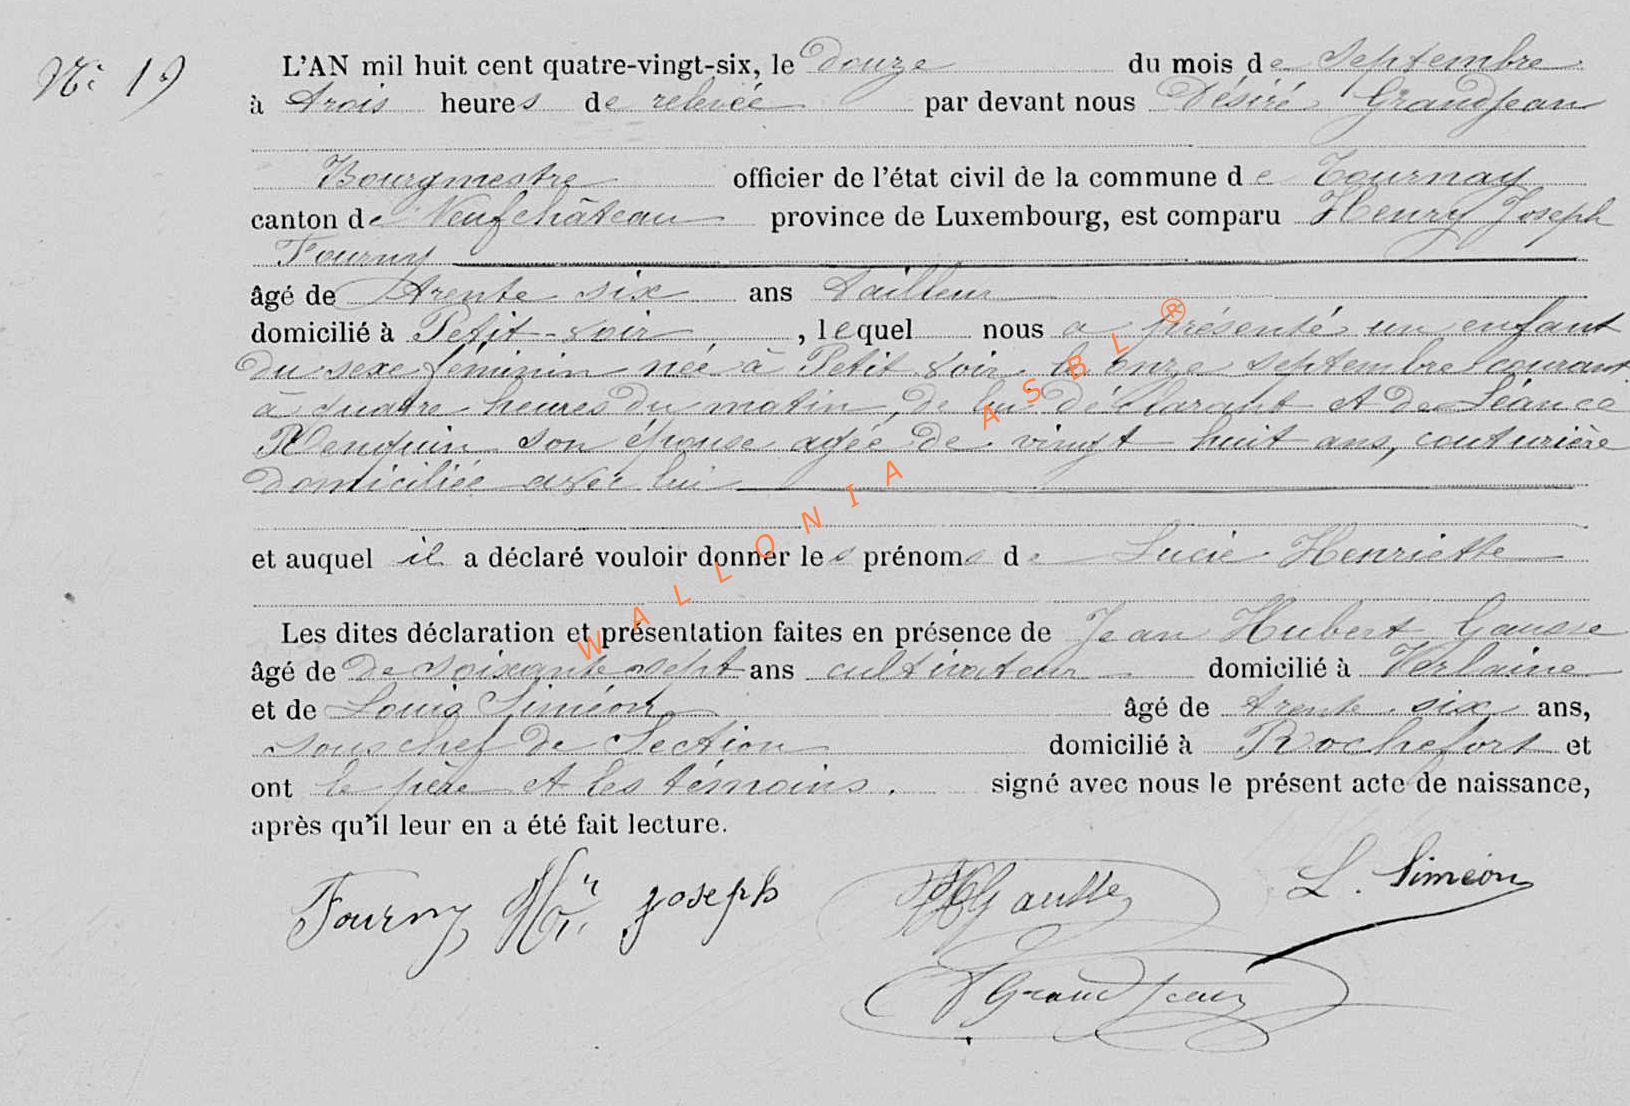 N° 19
L'AN mil huit cent quatre-vingt-six, le douze du mois de Septembre
à trois heures de relevée par devant nous Désiré Grandjean
Bourgmestre officier de l'état civil de la commune de Tournay
canton de Neufchâteau province de Luxembourg, est comparu Henry Joseph
Fourny
âgé de trente six ans tailleur
domicilié à Petit-Voir, lequel nous a présenté un enfant
du sexe féminin née à Petit Voir le onze septembre courant
à quatre heures du matin, de lui déclarant et de Léance
son épouse agée de vingt huit ans, couturière
domiciliée avec lui
et auquel il a déclaré vouloir donner les prénoms de Lucie Henriette
Les dites déclaration et présentation faites en présence de Jean Hubert Gausse
âgé de de soixante sept ans cultivateur domicilié à Verlaine
et de Louis Siméon âgé de trente six ans,
sous chef de Section domicilié à Rochefort et
ont le père et les témoins. signé avec nous le présent acte de naissance,
après qu'il leur en a été fait lecture.
Fourny Hri Joseph
JHGausse
L. Siméon
DGrandjean
WALLONIA ASBL ®